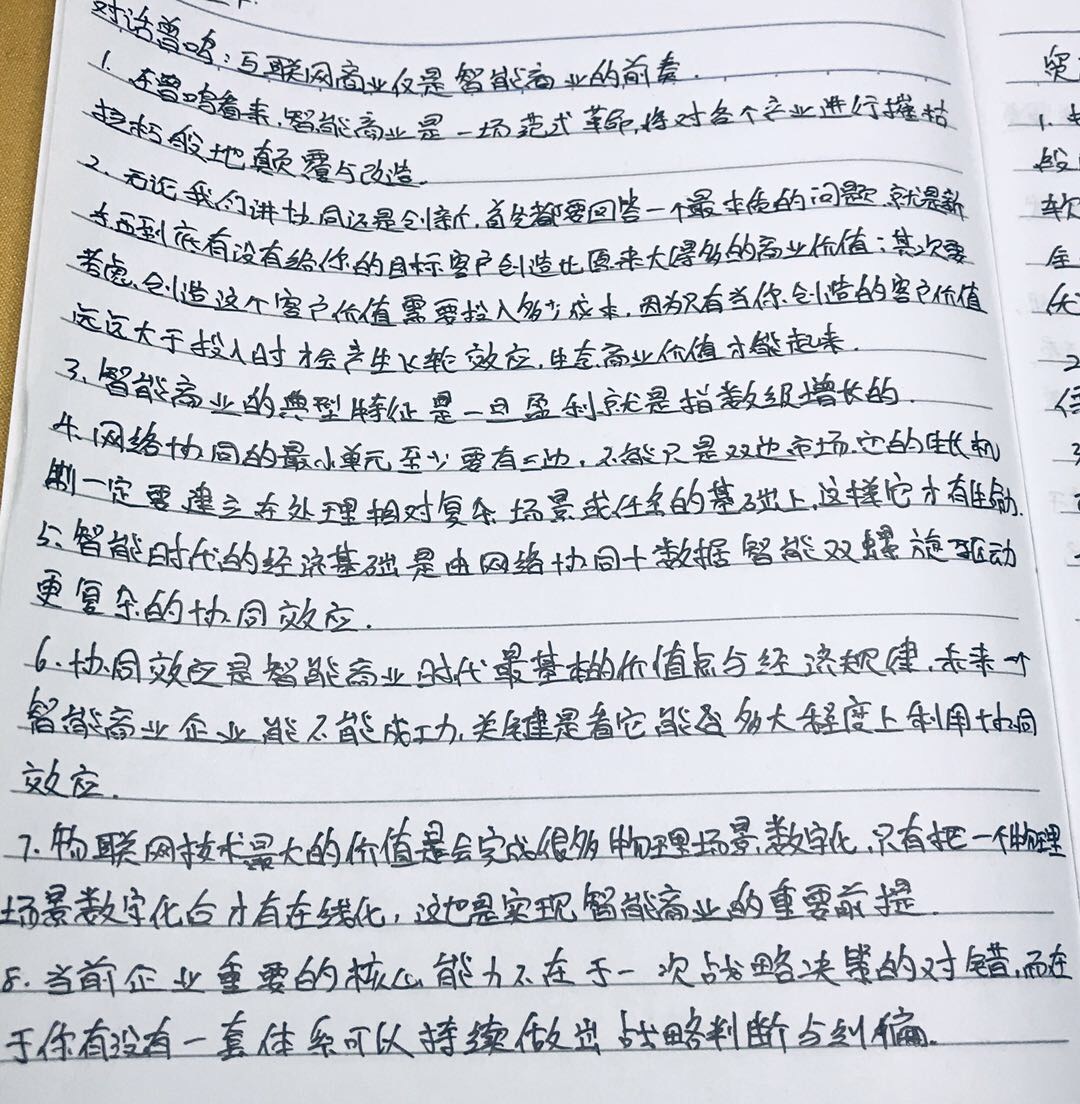 对话曾鸣：互联网商业仅是智能商业的前奏.
1. 在曾鸣看来,智能商业是一场范式革命,将对各个产业进行摧枯
拉朽般地颠覆与改造.
2. 无论我们讲协同还是创新,首先都要回答一个最本质的问题,就是新
东西到底有没有给你的目标客户创造比原来大得多的商业价值;其次要
考虑,创造这个客户价值需要投入多少成本,因为只有当你创造的客户价值
远远大于投入时才会产生飞轮效应,生态商业价值才能起来.
3、智能商业的典型特征是一旦盈利就是指数级增长的.
4.网络协同的最小单元至少要有三边,不能只是双边市场.它的生长机
制一定要建立在处理相对复杂场景或任务的基础上,这样它才有生命.
5、智能时代的经济基础是由网络协同+数据智能双螺旋驱动
更复杂的协同效应.
6.协同效应是智能商业时代最基本的价值点与经济规律,未来一个
智能商业企业能不能成功,关键是看它能在多大程度上利用协同
效应.
7.物联网技术最大的价值是会完成很多物理场景数字化,只有把一个物理
场景数字化后才有在线化,这也是实现智能商业的重要前提.
8.当前企业重要的核心能力不在于一次战略决策的对错,而在
于你有没有一套体系可以持续做出战略判断与纠偏.
1.
2
3